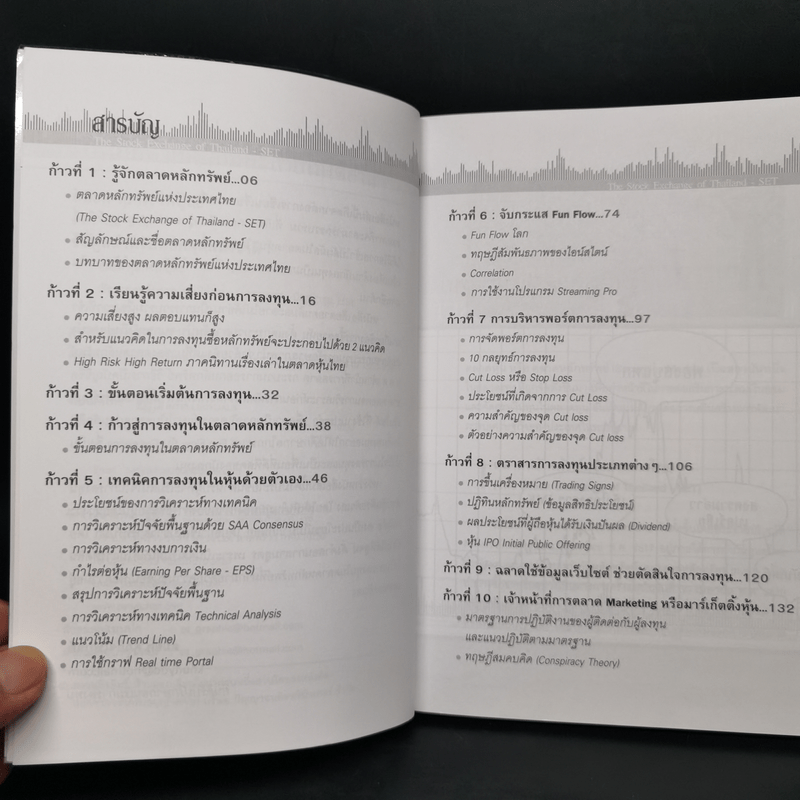 สารบัญ
The Stock Exchange of Thailand - SET
ก้าวที่ 1 : รู้จักตลาดหลักทรัพย์...06
• ตลาดหลักทรัพย์แห่งประเทศไทย
(The Stock Exchange of Thailand - SET)
• สัญลักษณ์และชื่อตลาดหลักทรัพย์
• บทบาทของตลาดหลักทรัพย์แห่งประเทศไทย
ก้าวที่ 2 : เรียนรู้ความเสี่ยงก่อนการลงทุน...16
• ความเสี่ยงสูง ผลตอบแทนก็สูง
• สำหรับแนวคิดในการลงทุนซื้อหลักทรัพย์จะประกอบไปด้วย 2 แนวคิด
• High Risk High Return ภาคนิทานเรื่องเล่าในตลาดหุ้นไทย
ก้าวที่ 3 : ขั้นตอนเริ่มต้นการลงทุน...32
ก้าวที่ 4 : ก้าวสู่การลงทุนในตลาดหลักทรัพย์...38
• ขั้นตอนการลงทุนในตลาดหลักทรัพย์
ก้าวที่ 5 : เทคนิคการลงทุนในหุ้นด้วยตัวเอง...46
• ประโยชน์ของการวิเคราะห์ทางเทคนิค
• การวิเคราะห์ปัจจัยพื้นฐานด้วย SAA Consensus
• การวิเคราะห์ทางงบการเงิน
• กำไรต่อหุ้น (Earning Per Share - EPS)
• สรุปการวิเคราะห์ปัจจัยพื้นฐาน
• การวิเคราะห์ทางเทคนิค Technical Analysis
• แนวโน้ม (Trend Line)
• การใช้กราฟ Real time Portal
The Stock Exchange of Thailand - SET
ก้าวที่ 6 : จับกระแส Fun Flow...74
• Fun Flow โลก
• ทฤษฎีสัมพันธภาพของไอน์สไตน์
• Correlation
• การใช้งานโปรแกรม Streaming Pro
ก้าวที่ 7 การบริหารพอร์ตการลงทุน...97
• การจัดพอร์ตการลงทุน
• 10 กลยุทธ์การลงทุน
• Cut Loss หรือ Stop Loss
• ประโยชน์ที่เกิดจากการ Cut Loss
• ความสำคัญของจุด Cut loss
• ตัวอย่างความสำคัญของจุด Cut loss
ก้าวที่ 8 : ตราสารการลงทุนประเภทต่าง ๆ...106
• การขึ้นเครื่องหมาย (Trading Signs)
• ปฏิทินหลักทรัพย์ (ข้อมูลสิทธิประโยชน์)
• ผลประโยชน์ที่ผู้ถือหุ้นได้รับเงินปันผล (Dividend)
• หุ้น IPO Initial Public Offering
ก้าวที่ 9 : ฉลาดใช้ข้อมูลเว็บไซต์ ช่วยตัดสินใจการลงทุน...120
ก้าวที่ 10 : เจ้าหน้าที่การตลาด Marketing หรือมาร์เก็ตติ้งหุ้น...132
• มาตรฐานการปฏิบัติงานของผู้ติดต่อกับผู้ลงทุน
และแนวปฏิบัติตามมาตรฐาน
• ทฤษฎีสมคบคิด (Conspiracy Theory)